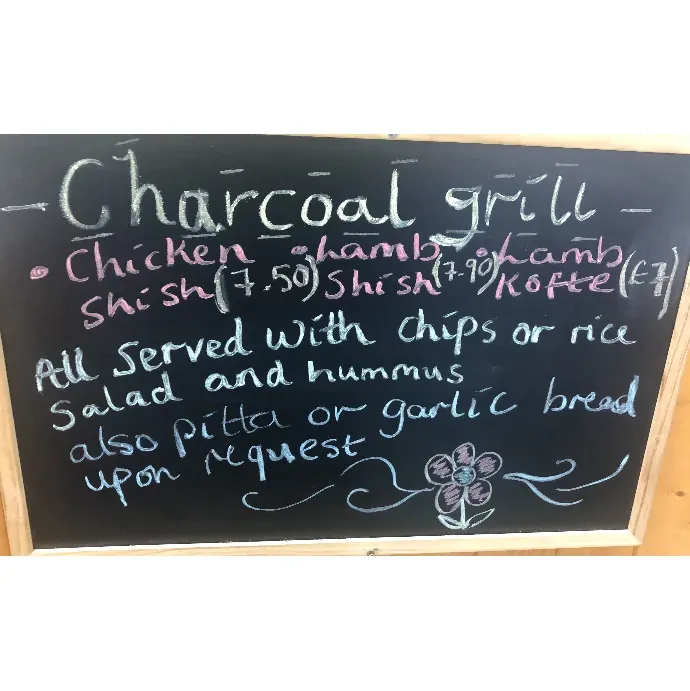 - Charcoal grill -
• Chicken • Lamb • Lamb
Shish (7.50) Shish (7.90) Kofte (£7)
All Served with chips or rice
Salad and hummus
also pitta or garlic bread
upon request